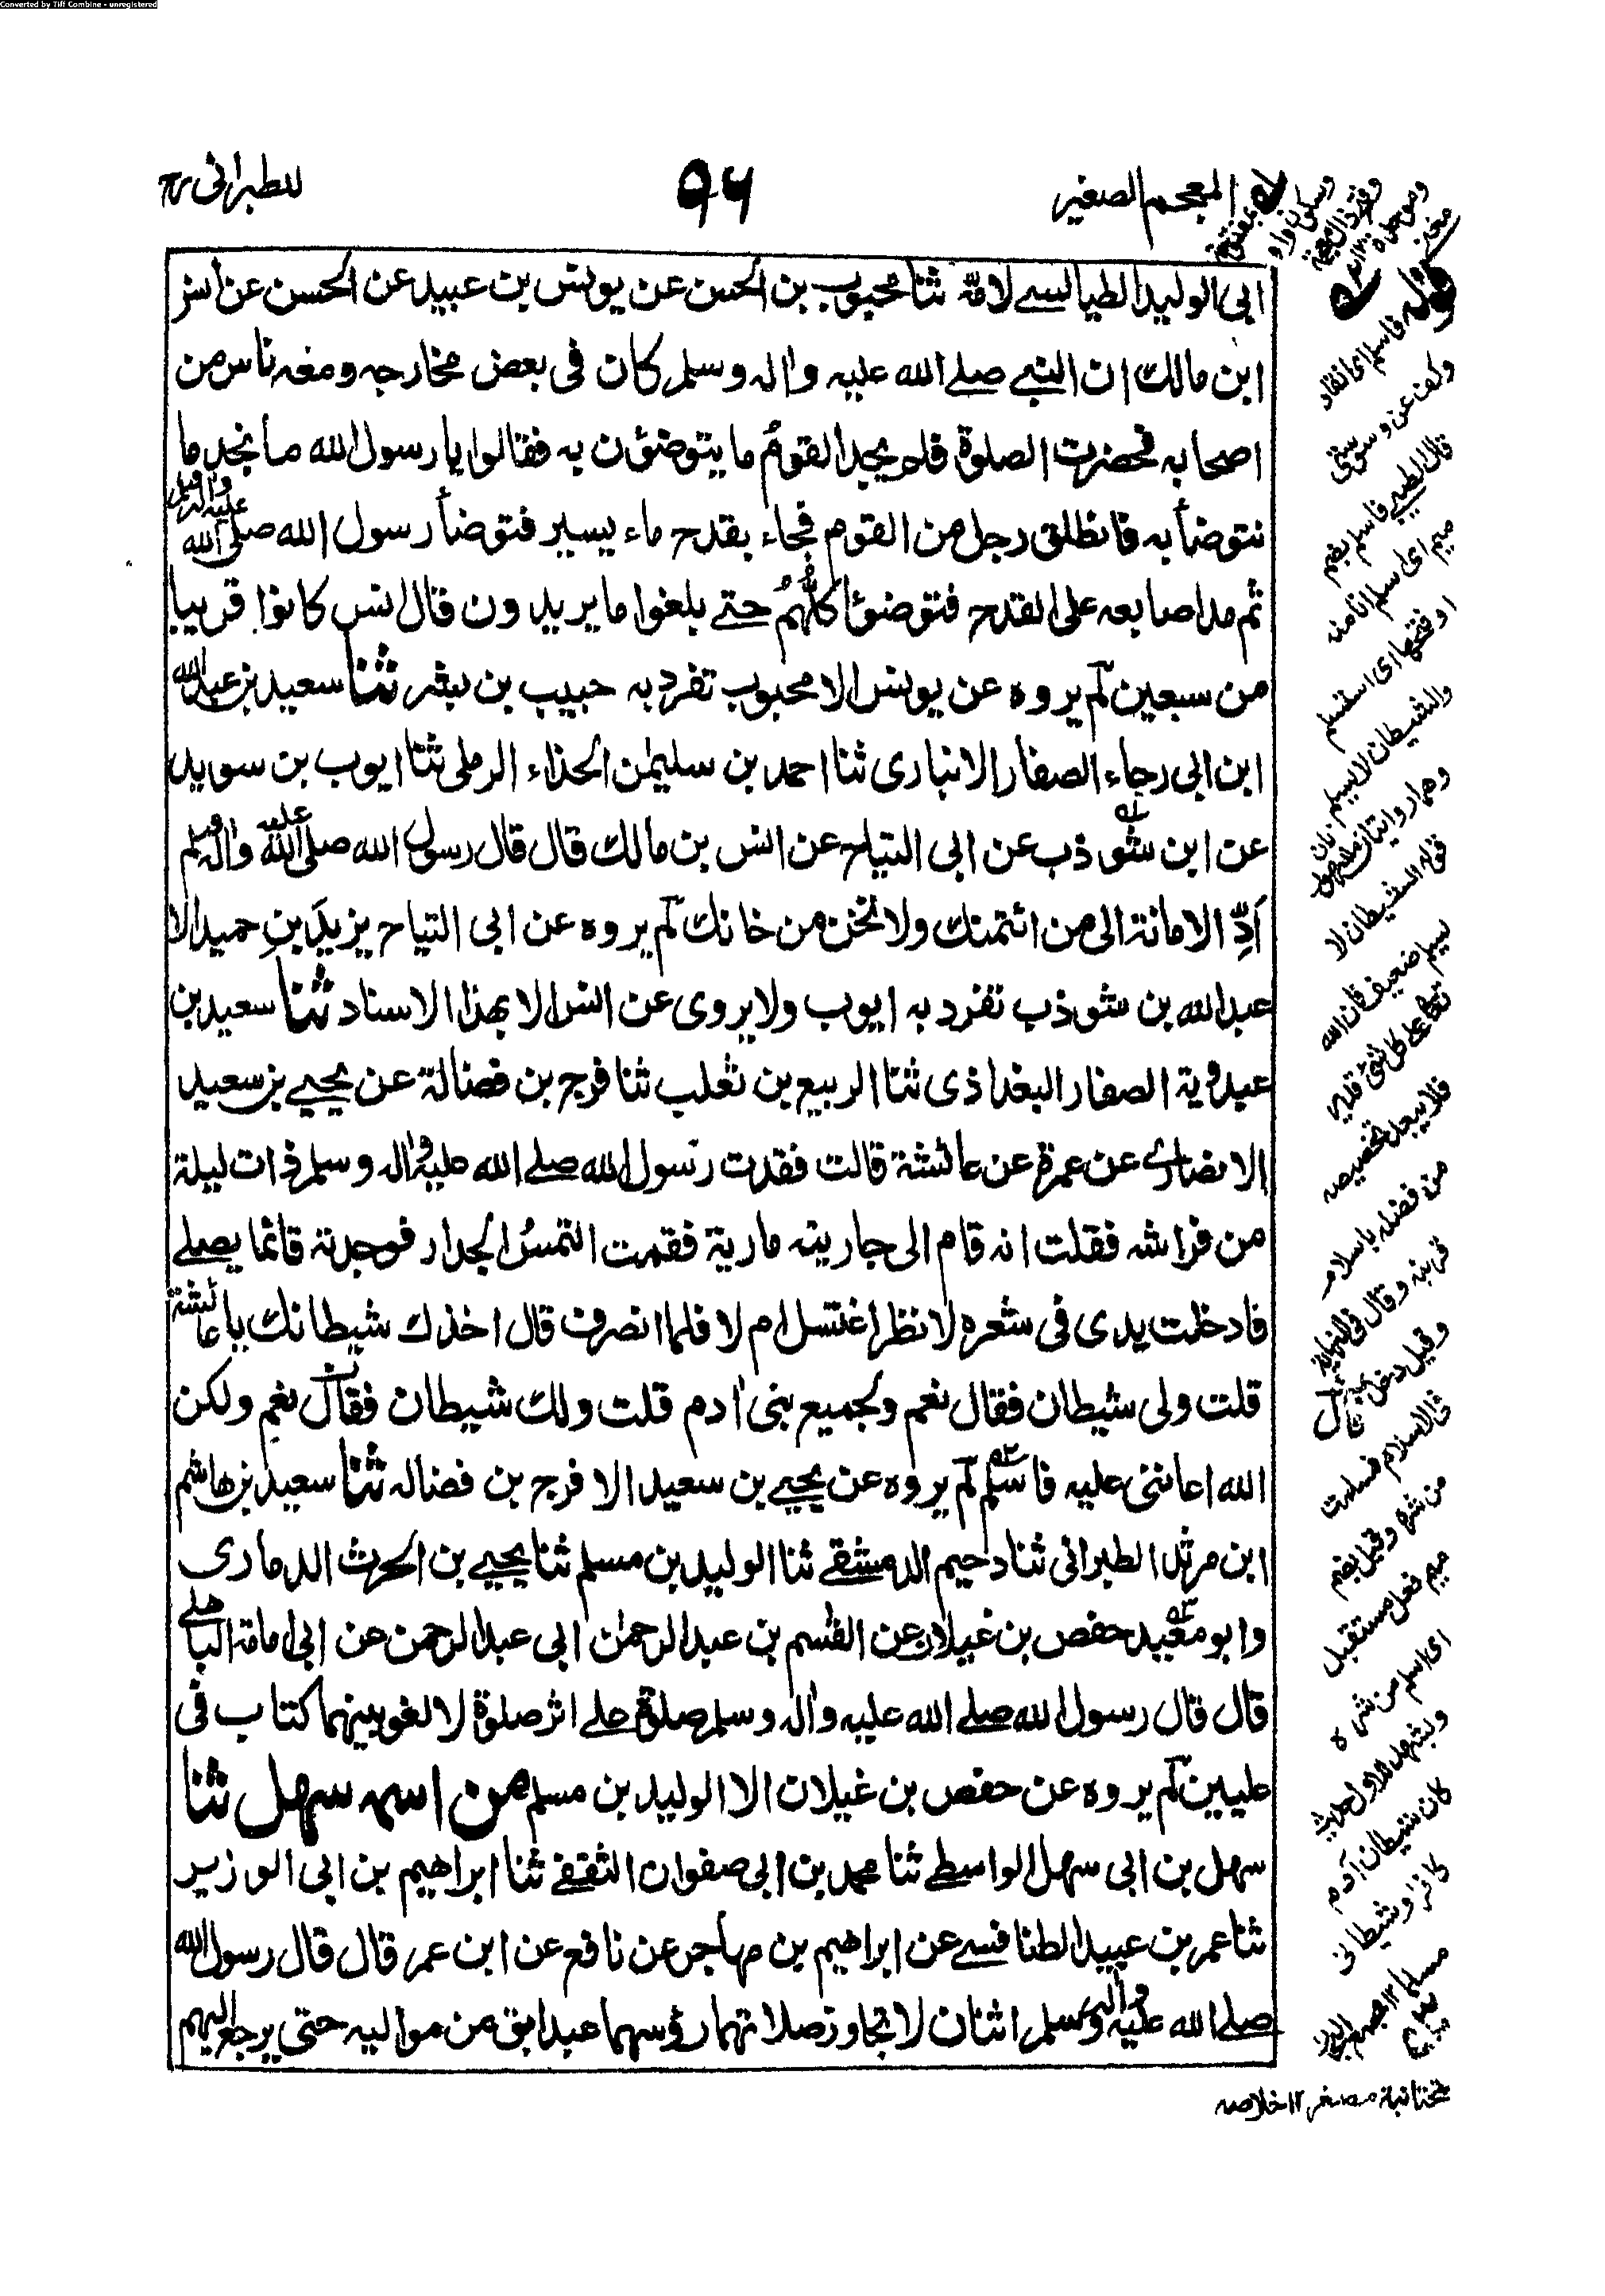 Converted by Tiff Combine - unregistered
المعجم الصغير
٩٦
للطبرانی
ابی الولید الطیالسے لامّہ ثنا محبوب بن الحسن عن یونس بن عبید عن الحسن عن انس
ابن مالك ان النبے صلے الله علیہ واٰلہ وسلم کان فی بعض مخارجہ ومعہ ناس من
اصحابہ فحضرت الصلوٰة فلم یجد القومُ ما یتوضئون بہ فقالوا یا رسول الله ما نجد ما
نتوضأ بہ فانطلق رجل من القوم فجاء بقدح ماء یسیر فتوضأ رسول الله صلی الله علیہ واٰلہ وسلم
ثم مد اصابعہ علی القدح فتوضئا کلُّهُم حتے بلغوا ما یریدون قال انس کانوا قریبا
من سبعین لم یروه عن یونس الا محبوب تفرد بہ حبیب بن بشر ثنا سعید بن عبد الله
ابن ابی رجاء الصفار الانباری ثنا احمد بن سلیمٰن الحذاء الرملی ثنا ایوب بن سوید
عن ابن شوذب عن ابی التیاح عن انس بن مالك قال قال رسول الله صلی الله علیہ واٰلہ وسلم
اَدِّ الامانة الی من ائتمنك ولا تخن من خانك لم یروه عن ابی التیاح یزیدَ بنِ حمید الا
عبد الله بن شوذب تفرد بہ ایوب ولا یروی عن انس الا بهذا الاسناد ثنا سعید بن
عبدویة الصفار البغداذی ثنا الربیع بن ثعلب ثنا فرج بن فضالة عن یحیے بن سعید
الانصارے عن عمرة عن عائشة قالت فقدت رسول الله صلے الله علیہ واٰلہ وسلم ذات لیلة
من فراشہ فقلت انہ قام الی جاریتہ ماریة فقمت التمسُ الجدار فوجدتہ قائما یصلے
فادخلت یدی فی شعره لانظر اغتسل ام لا فلما انصرف قال اخذك شیطانك یا عائشة
قلت ولی شیطان فقال نعم ولجمیع بنی اٰدم قلت ولك شیطان فقال نعم ولکن
الله اعاننی علیہ فاسلم لم یروه عن یحیے بن سعید الا فرج بن فضالہ ثنا سعید بن هاشم
ابن مرثد الطبرانی ثنا دحیم الدمشقے ثنا الولید بن مسلم ثنا یحیے بن الحرث الذماری
وابو معید حفص بن غیلان عن القٰسم بن عبد الرحمٰن ابی عبد الرحمن عن ابی امامة الباهلے
قال قال رسول الله صلے الله علیہ واٰلہ وسلم صلوٰة علے اثر صلوٰة لا لغو بینهما کتاب فی
علیین لم یروه عن حفص بن غیلان الا الولید بن مسلم من اسمہ سهل ثنا
سهل بن ابی سهل الواسطے ثنا محمد بن ابی صفوان الثقفے ثنا ابراهیم بن ابی الوزیر
ثنا عمر بن عبید الطنافسے عن ابراهیم بن مهاجر عن نافع عن ابن عمر قال قال رسول الله
صلے الله علیہ واٰلہ وسلم اثنان لا تجاوز صلاتهما رؤسهما عبد ابق من موالیہ حتی یرجع الیهم
قولہ فاسلم ای انقاد
وکف عن وسوستی
قال الطیبے فاسلم بضم
میم ای اسلم انا منہ
او فتحها ای استسلم
والشیطان لا یسلم
قولہ الشیطان لا
یسلم ضعیف فان الله
تعالی علی کل شئ قدیر
فلا یبعد تخصیصہ
من فضلہ باسلام
قرینہ وقال فی النهایة
وقیل دخل
فی الاسلام فسلمت
من شره وقیل بضم
میم فعل مستقبل
ای اسلم من شره
ویشهد للاول حدیث
کان شیطان آدم
کافرا وشیطانی
مسلما ١٢
تحتانیة مصغر ١٢ خلاصہ